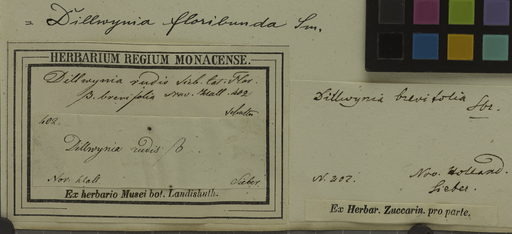 = Dillwynia floribunda Sm.
HERBARIUM REGIUM MONACENSE.
Dillwynia rudis Sieb.
β. brevifolia Nov. Holl. 402
402.
Dillwynia rudis β.
Nov. Holl. Sieber.
Ex herbario Musei bot. Landishuth.
Dillwynia brevifolia
N. 202. Nov. Holland.
Sieber.
Ex Herbar. Zuccarin. pro parte.